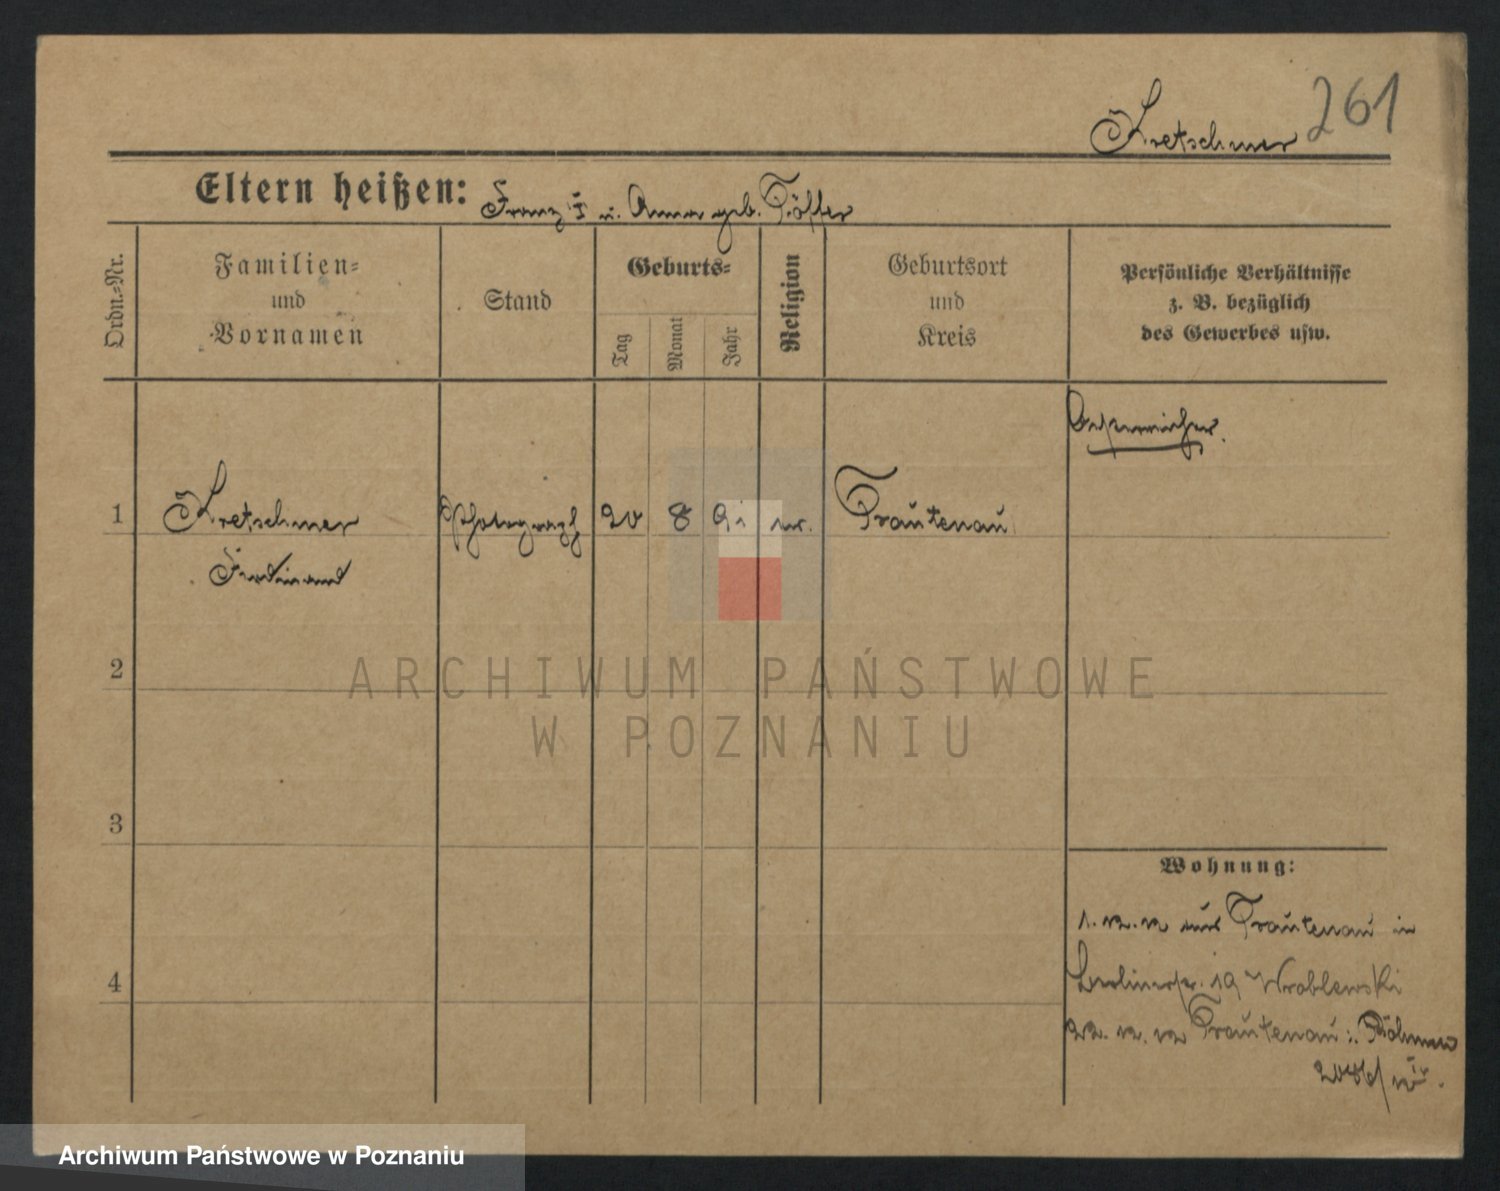 Kretschmer 261
Eltern heißen: Franz I u. Anna geb. Töffer
Ordn.-Nr.
Familien-
und
Vornamen
Stand
Geburts-
Tag
Monat
Jahr
Religion
Geburtsort
und
Kreis
Persönliche Verhältnisse
z. B. bezüglich
des Gewerbes usw.
Österreicher.
1 Kretschmer Photograph 20 8 91 Trautenau
Ferdinand
2
3
4
Wohnung:
1. 12. 12 aus Trautenau in
Berlinerstr. 19 Wroblewski
22. 12. 12 Trautenau i. Böhmen
ARCHIWUM PAŃSTWOWE
W POZNANIU
Archiwum Państwowe w Poznaniu